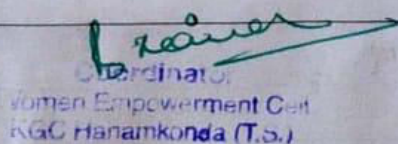 Coordinator
Women Empowerment Cell
KGC Hanamkonda (T.S.)